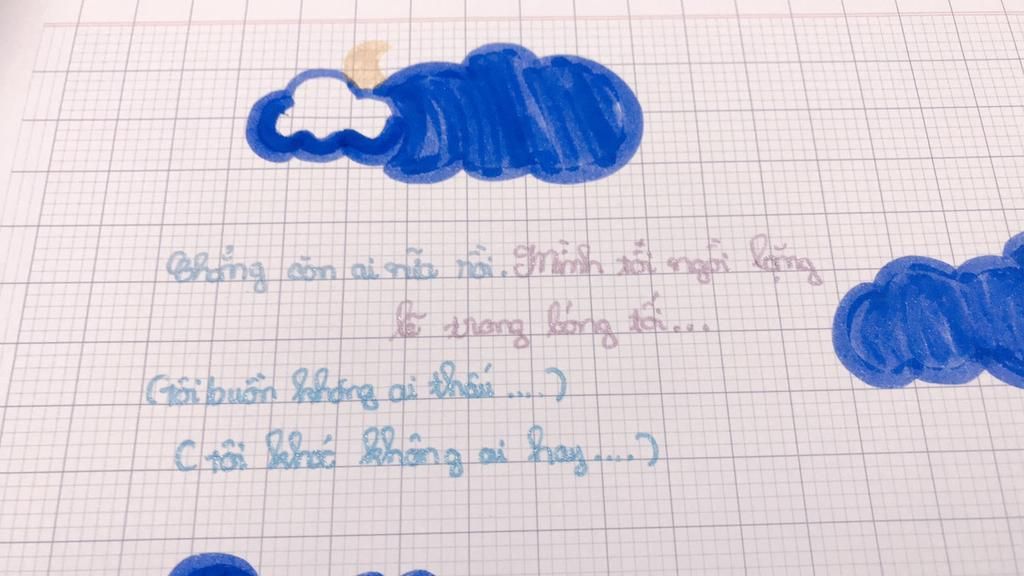 Chẳng còn ai nữa rồi. Mình tôi ngồi lặng
lẽ trong bóng tối...
(tôi buồn không ai thấu ....)
(tôi khóc không ai hay....)